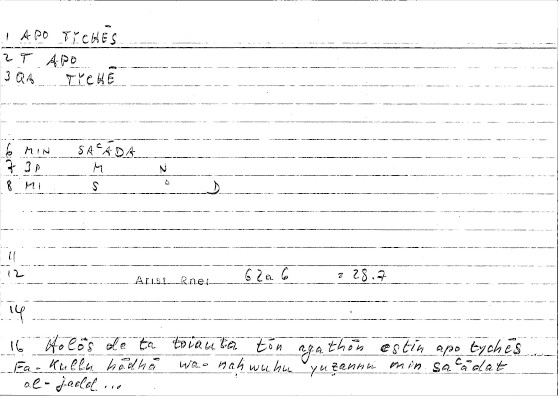 1 APO TYCHĒS
2 T APO
3 QA TYCHĒ
6 MIN SAᶜĀDA
7 3P M N
8 MI S ᶜ D
11
12 Arist. Rhet 62a6 = 28.7
14
16 Holōs de ta toiauta tōn agathōn estin apo tychēs
Fa-kullu hādhā wa-naḥwuhu yuẓannu min saᶜādat
al-jadd...